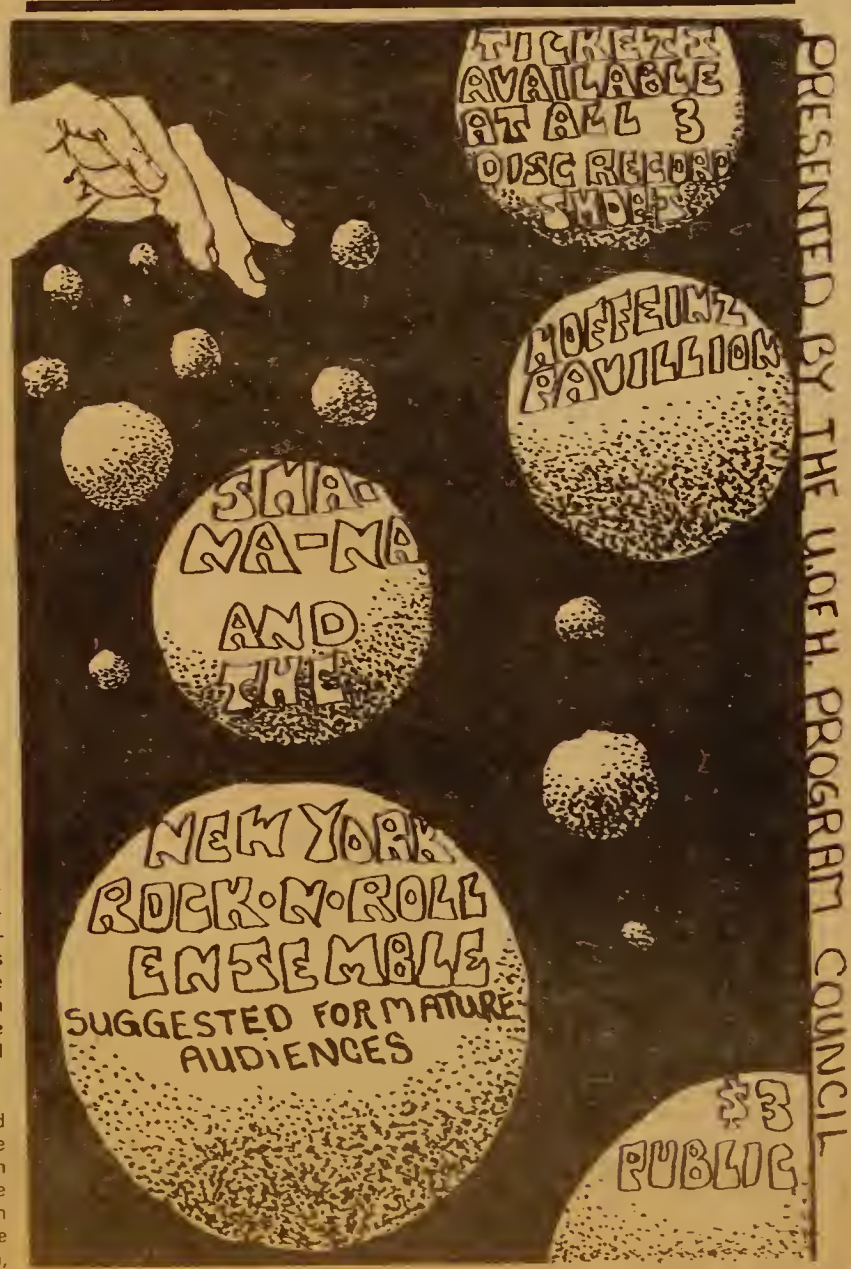 TICKETS
AVAILABLE
AT ALL 3
DISC RECORD
SHOPS
HOFFEINZ
PAVILLION
SHA-
NA-NA
AND
THE
NEW YORK
ROCK•N•ROLL
ENSEMBLE
SUGGESTED FOR MATURE
AUDIENCES
$3
PUBLIC
PRESENTED BY THE U.OF H. PROGRAM COUNCIL